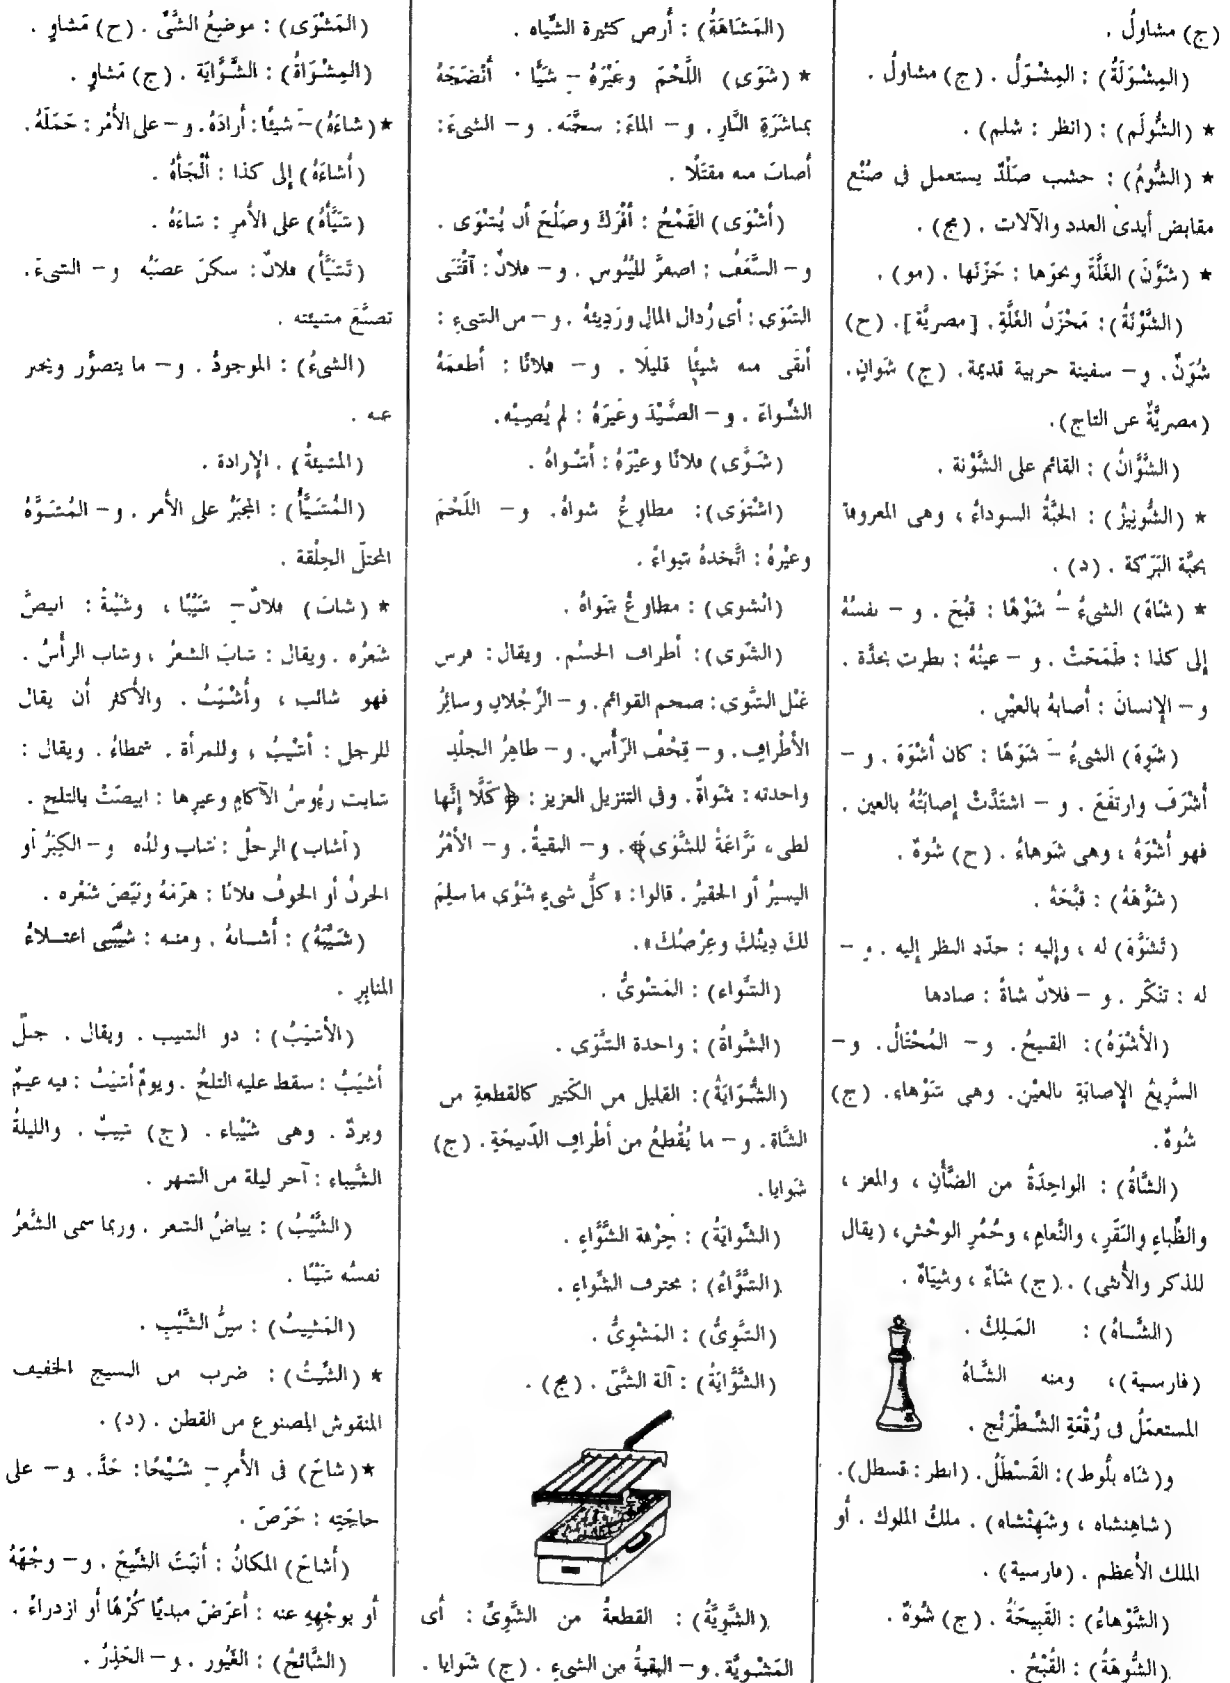 (ج) مشاولُ .
(المِشْوَلَةُ) : المِشْوَلُ . (ج) مشاولُ .
★ (الشُّولَم) : (انظر : شلم) .
★ (الشُّومُ) : خشب صَلْدٌ يستعمل فى صُنْع
مقابض أيدى العدد والآلات . (مج) .
★ (شَوَّنَ) الغَلَّةَ ونحوَها : خَزَنَها . (مو) .
(الشَّوْنَةُ) : مَخْزَنُ الغَلَّةِ . [مصريَّة] . (ج)
شُوَنٌ . و – سفينة حربية قديمة . (ج) شَوانٍ .
(مصريَّةٌ عن التاج) .
(الشَّوَّانُ) : القائم على الشَّوْنة .
★ (الشُّونِيزُ) : الحبَّةُ السوداءُ ، وهى المعروفة
بحبَّة البَرَكة . (د) .
★ (شَاهَ) الشىءُ –ُ شَوْهًا : قَبُحَ . و – نفسُهُ
إلى كذا : طَمَحَتْ . و – عينُهُ : نظرت بحدَّة .
و – الإنسانَ : أصابهُ بالعيْنِ .
(شَوِهَ) الشىءُ –َ شَوَهًا : كان أَشْوَهَ . و –
أَشْرَفَ وارتفَعَ . و – اشتَدَّتْ إصابَتُهُ بالعين .
فهو أَشْوَهُ ، وهى شَوهاءُ . (ج) شُوهٌ .
(شَوَّهَهُ) : قبَّحَهُ .
(تَشَوَّهَ) له ، وإليه : حدّد النظر إليه . و –
له : تنكّر . و – فلانٌ شاةً : صادها
(الأَشْوَهُ) : القبيحُ . و – المُخْتَالُ . و –
السَّرِيعُ الإصابَةِ بالعيْنِ . وهى شَوْهاء . (ج)
شُوهٌ .
(الشَّاةُ) : الواحِدَةُ من الضَّأنِ ، والمعز ،
والظِّباءِ والبَقَرِ ، والنَّعامِ ، وحُمُرِ الوحْشِ ، (يقال
للذكر والأنثى) . (ج) شَاءٌ ، وشِيَاهٌ .
(الشَّاهُ) : المَلِكُ .
(فارسية) ، ومنه الشَّاهُ
المستعمَلُ فى رُقْعَةِ الشِّطْرَنْج .
و (شَاه بلُّوط) : القَسْطَلُ . (انظر : قسطل) .
(شاهِنشاه ، وشَهِنْشاه) . ملكُ الملوك . أو
الملك الأعظم . (فارسية) .
(الشَّوْهاءُ) : القَبِيحَةُ . (ج) شُوهٌ .
(الشُّوهَةُ) : القُبْحُ .
(المَشَاهَةُ) : أرض كثيرة الشِّياه .
★ (شَوَى) اللَّحْمَ وغَيْرَهُ –ِ شَيًّا : أَنْضَجَهُ
بمباشَرَةِ النَّارِ . و – الماءَ : سخَّنه . و – الشىءَ :
أصابَ منه مقتَلًا .
(أَشْوَى) القَمْحُ : أَفْرَكَ وصَلُحَ أن يُشْوَى .
و – السَّعَفُ : اصفرَّ لليُبُوسِ . و – فلانٌ : اقْتَنَى
الشَّوَى : أى رُذال المالِ ورَدِيئهُ . و – من الشىءِ :
أبقَى منه شيئًا قليلًا . و – فلانًا : أطعمَهُ
الشِّواءَ . و – الصَّيْدَ وغَيرَهُ : لم يُصِبْه .
(شَوَّى) فلانًا وغيْرَهُ : أَشْواهُ .
(اشْتَوَى) : مطاوِعُ شواهُ . و – اللّحْمَ
وغيْرهُ : اتَّخدهُ شِواءً .
(انْشوى) : مطاوعُ شَواهُ .
(الشَّوى) : أطراف الجسْم . ويقال : فرس
عَبْل الشَّوى : ضخم القوائم . و – الرِّجْلانِ وسائِرُ
الأطْرافِ . و – قِحْفُ الرّأْسِ . و – ظاهِرُ الجلْدِ
واحدته : شَواةٌ . وفى التنزيل العزيز : ﴿كَلَّا إنَّها
لظى ، نَزَّاعَةً للشَّوَى﴾ . و – البقيةُ . و – الأمْرُ
اليسيرُ أو الحقيرُ . قالوا : « كلُّ شىءٍ شَوًى ما سلِمَ
لكَ دِينُكَ وعِرْضُك » .
(الشِّواء) : المَشْوىُّ .
(الشَّواةُ) : واحدة الشَّوَى .
(الشُّوَايَةُ) : القليل من الكَثير كالقطعةِ من
الشَّاة . و – ما يُقْطعُ من أطْرافِ الذَّبيحَةِ . (ج)
شَوايا .
(الشِّوايَةُ) : حِرْفة الشَّوَّاءِ .
(الشَّوَّاءُ) : محترف الشِّواءِ .
(الشَّوِىُّ) : المَشْوِىُّ .
(الشَّوَّايَةُ) : آلة الشَّىّ . (مج) .
(الشَّوِيَّةُ) : القطعةُ من الشَّوِىِّ : أى
المَشْوِيَّة . و – البقيةُ من الشىءِ . (ج) شَوايا .
(المَشْوَى) : موضِعُ الشَّىِّ . (ج) مَشاوٍ .
(المِشْوَاةُ) : الشَّوَّايَة . (ج) مَشاوٍ .
★ (شاءَهُ) –َ شيئًا : أرادَهُ . و – على الأمْر : حَمَلَهُ .
(أَشاءَهُ) إلى كذا : أَلْجَأَهُ .
(شَيَّأَهُ) على الأمرِ : شاءَهُ .
(تَشَيَّأَ) فلانٌ : سكنَ غضبُه و – الشىءَ .
تصنَّعَ مشيئته .
(الشىءُ) : الموجودُ . و – ما يتصوَّر ويخبر
عنه .
(المشيئةُ) . الإرادة .
(المُشَيَّأُ) : المجبَرُ على الأمر . و – المُشَوَّهُ
المختلّ الخِلْقة .
★ (شابَ) فلانٌ –ِ شَيْبًا ، وشَيْبةً : ابيضَّ
شَعرُه . ويقال : شابَ الشعرُ ، وشاب الرأسُ .
فهو شائب ، وأَشْيَبُ . والأكثر أن يقال
للرجل : أَشْيبُ ، وللمرأة . شمطاءُ . ويقال :
شابت رءُوسُ الآكامِ وغيرِها : ابيضّتْ بالثلج .
(أَشاب) الرجلُ : شاب ولدُه و – الكِبَرُ أو
الحزنُ أو الخوفُ فلانًا : هرّمَهُ وبَيّضَ شَعْره .
(شَيَّبَهُ) : أَشابهُ . ومنه : شيَّبَنى اعتلاءُ
المنابِرِ .
(الأَشيَبُ) : ذو الشيب . ويقال . جبلٌ
أشيَبُ : سقط عليه الثلجُ . ويومٌ أشيَبُ : فيه غيمٌ
وبردٌ . وهى شَيْباء . (ج) شِيبٌ . والليلةُ
الشَّيباء : آخر ليلة من الشهر .
(الشَّيْبُ) : بياضُ الشعر . وربما سمى الشَّعرُ
نفسُه شَيْبًا .
(المَشيبُ) : سِنُّ الشَّيْبِ .
★ (الشِّيتُ) : ضرب من النسيج الخفيف
المنقوش المصنوع من القطن . (د) .
★ (شاحَ) فى الأمرِ –ِ شَيْحًا : جَدَّ . و – على
حاجَتِه : حَرَصَ .
(أَشاحَ) المكانُ : أنبَتَ الشِّيحَ . و – وجْهَهُ
أو بوجْهِهِ عنه : أعرَضَ مبديًا كُرْهًا أو ازدراءً .
(الشَّائحُ) : الغَيُور . و – الحَذِرُ .